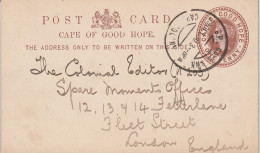 POST CARD
CAPE OF GOOD HOPE.
THE ADDRESS ONLY TO BE WRITTEN ON THIS SIDE.
CAPE OF GOOD HOPE
The Colonial Editor
Spare Moments Offices
12, 13 & 14 Fetter Lane
Fleet Street
London
England